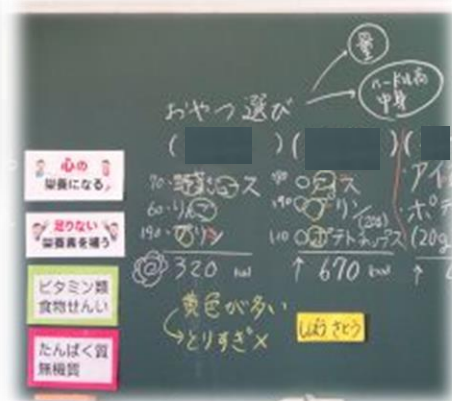 量
ハードル高
中身
おやつ選び
( ) ( ) (
心の
栄養になる
足りない
栄養素を補う
ビタミン類
食物せんい
たんぱく質
無機質
70・野菜ジュース
60・りんご
190・プリン
320 kcal
アイス
190 プリン
110 ポテトチップス
(20g)
↑ 670 kcal
アイ
ポテ
(20g
↑
黄色が多い
とりすぎ×
しぼう さとう